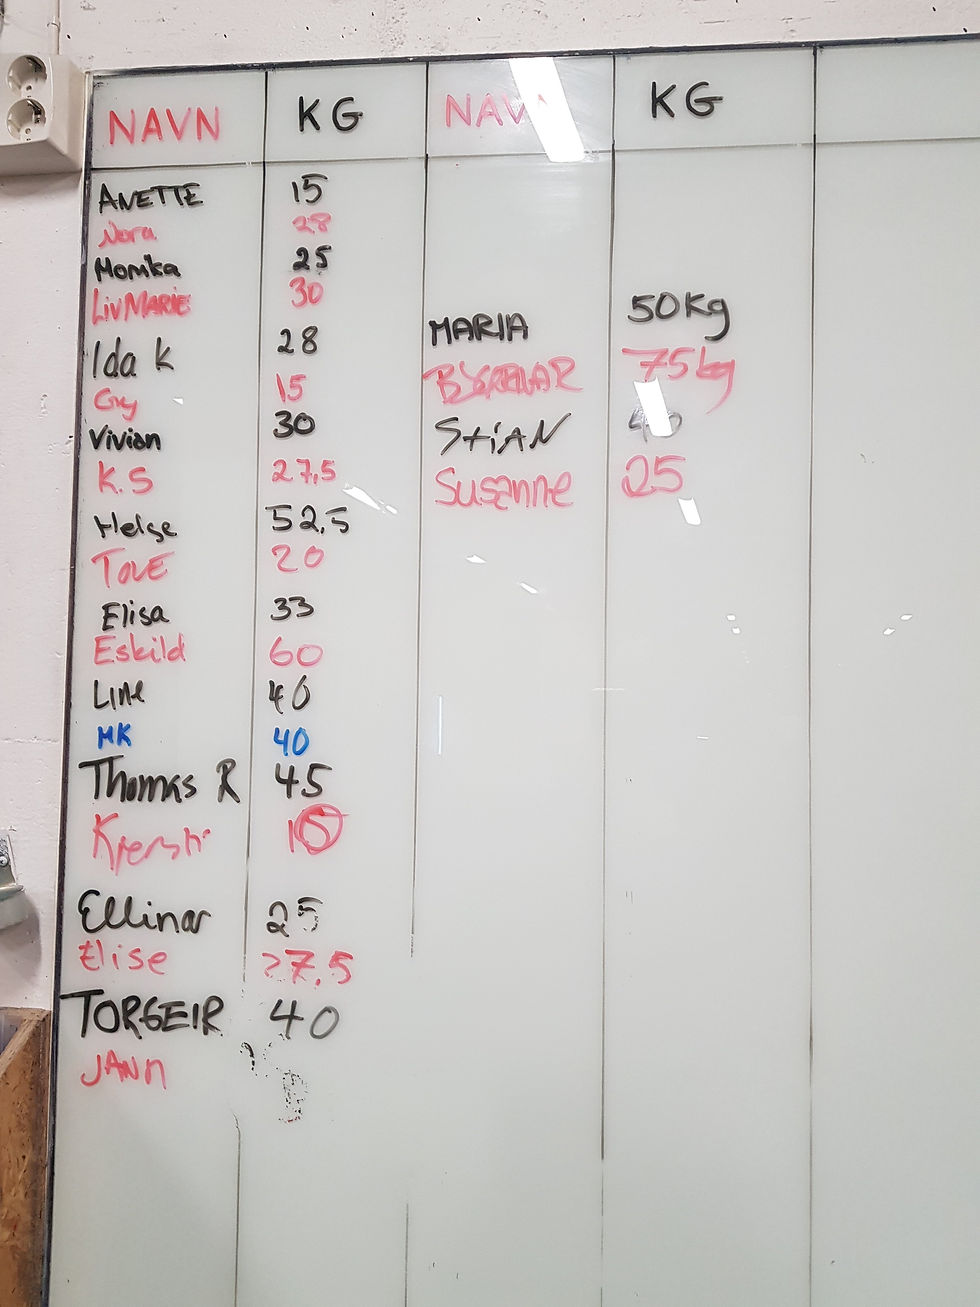 NAVN KG NAVN KG
ANETTE 15
Nora 28
Monika 25
LIV MARIE 30
Ida K 28
Gry 15
Vivian 30
K.S 27,5
Helge 52,5
TOVE 20
Elisa 33
Eskild 60
LINE 40
MK 40
Thomas R 45
Kjersti 15
Ellinor 25
Elise 27,5
TORGEIR 40
JANN
MARIA 50kg
75kg
STiAN 40
Susanne 25